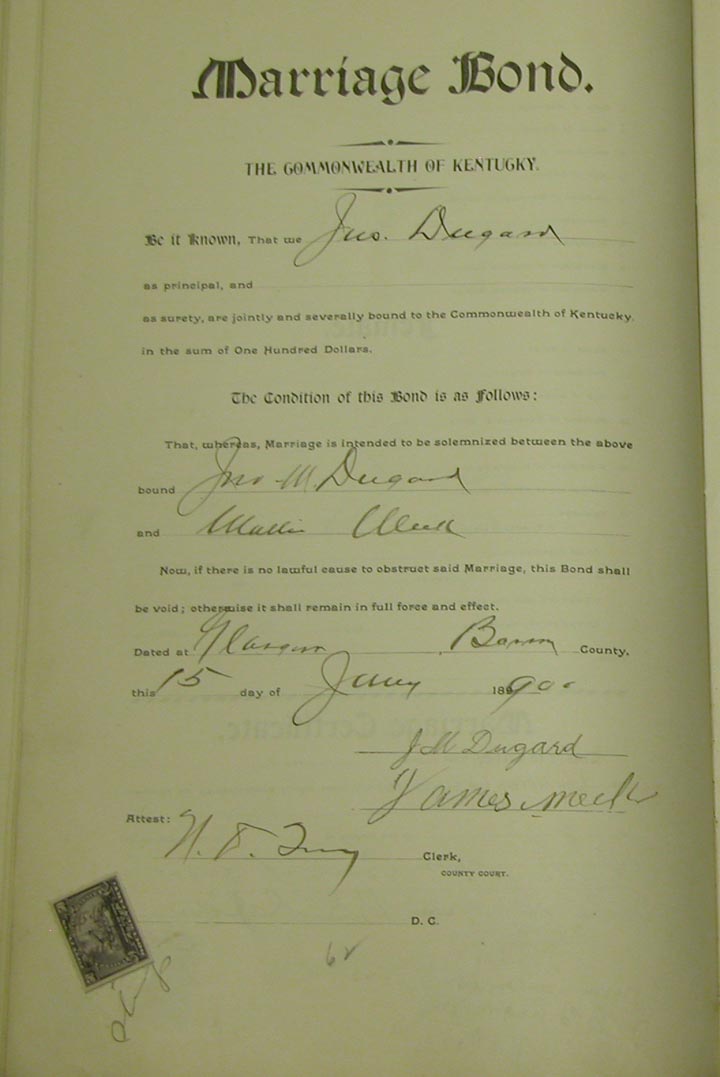 Marriage Bond.
THE COMMONWEALTH OF KENTUCKY.
Be it Known, That we Jno. Dugard
as principal, and
as surety, are jointly and severally bound to the Commonwealth of Kentucky,
in the sum of One Hundred Dollars.
The Condition of this Bond is as Follows:
That, whereas, Marriage is intended to be solemnized between the above
bound Jno M Dugard
and Mallie Meek
Now, if there is no lawful cause to obstruct said Marriage, this Bond shall
be void; otherwise it shall remain in full force and effect.
Dated at Glasgow, Barren County,
this 15 day of 1900
J M Dugard
James meek
Attest: Clerk,
COUNTY COURT.
D. C.